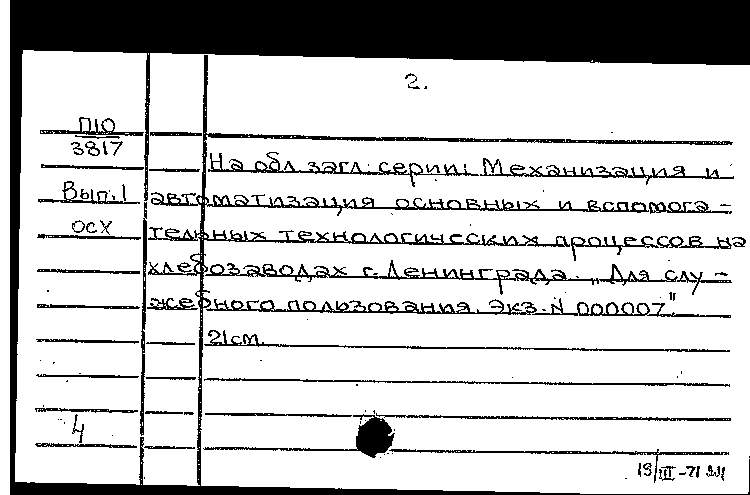 2.
П10
3817
На обл. загл. серии: Механизация и
Вып. 1
автоматизация основных и вспомога-
ОСХ
тельных технологических процессов на
хлебозаводах г. Ленинграда. „Для слу-
жебного пользования. Экз. N 000007"
21см.
4
III-71